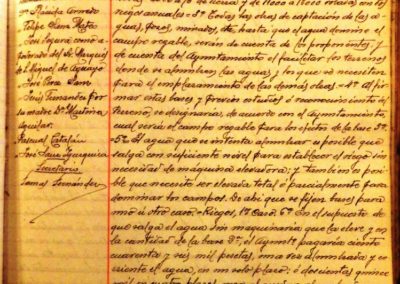 Felipe Sanz Mateo
José Segura como a-
poderado del Sr. Marqués
de S. Miguel de Aguayo
José Pérez Sanz
Luis Fernández por
su madre Dª Martina
Aguilar.
Pascual Catalán
José Sanz
Secretario
Tomás Fernández
anuales = 3ª Todas las obras de captación de las a-
guas, pozos, minados, etc. hasta que el agua domine el
campo regable, serán de cuenta de los proponentes; y
de cuenta del Ayuntamiento el facilitar los terrenos
donde se alumbren las aguas y los que se necesiten
para el emplazamiento de las demás obras = 4ª Al fir-
mar estas bases y previos estudios ó reconocimiento del
terreno se designaría, de acuerdo con el Ayuntamiento,
cual sería el campo regable para los efectos de la base 3ª.
5ª El agua que se intenta alumbrar es posible que
salga con suficiente nivel para establecer el riego sin
necesidad de maquina elevadora; y tambien es po-
ble que necesite ser elevada total ó parcialmente para
dominar los campos. De ahi que se fijen bases para
uno ú otro caso. = Riegos, 1er Caso. 6ª En el supuesto de
que salga el agua sin maquinaria que la eleve y en
la cantidad de la base 2ª, el Ayuntº pagaría ciento
cuarenta y seis mil pesetas, una vez alumbrada y co-
rriente el agua, en un solo plazo; ó doscientas quince
mil en cuatro plazos